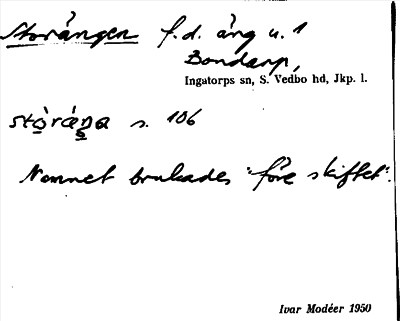 Storängen f.d. äng u. 1
Bondarp,
Ingatorps sn, S. Vedbo hd, Jkp. l.
stòráŋa s. 106
Namnet brukades "före skiftet".
Ivar Modéer 1950